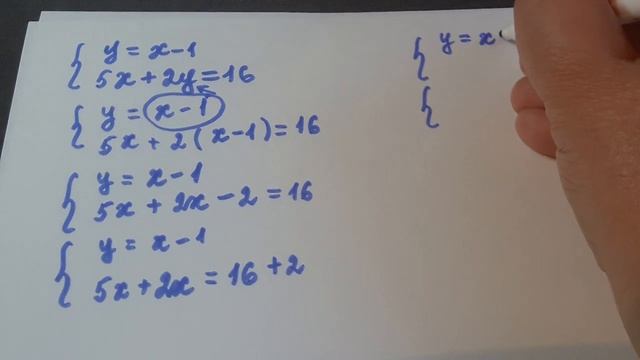 y = x - 1
5x + 2y = 16
y = x - 1
5x + 2(x - 1) = 16
y = x - 1
5x + 2x - 2 = 16
y = x - 1
5x + 2x = 16 + 2
y = x